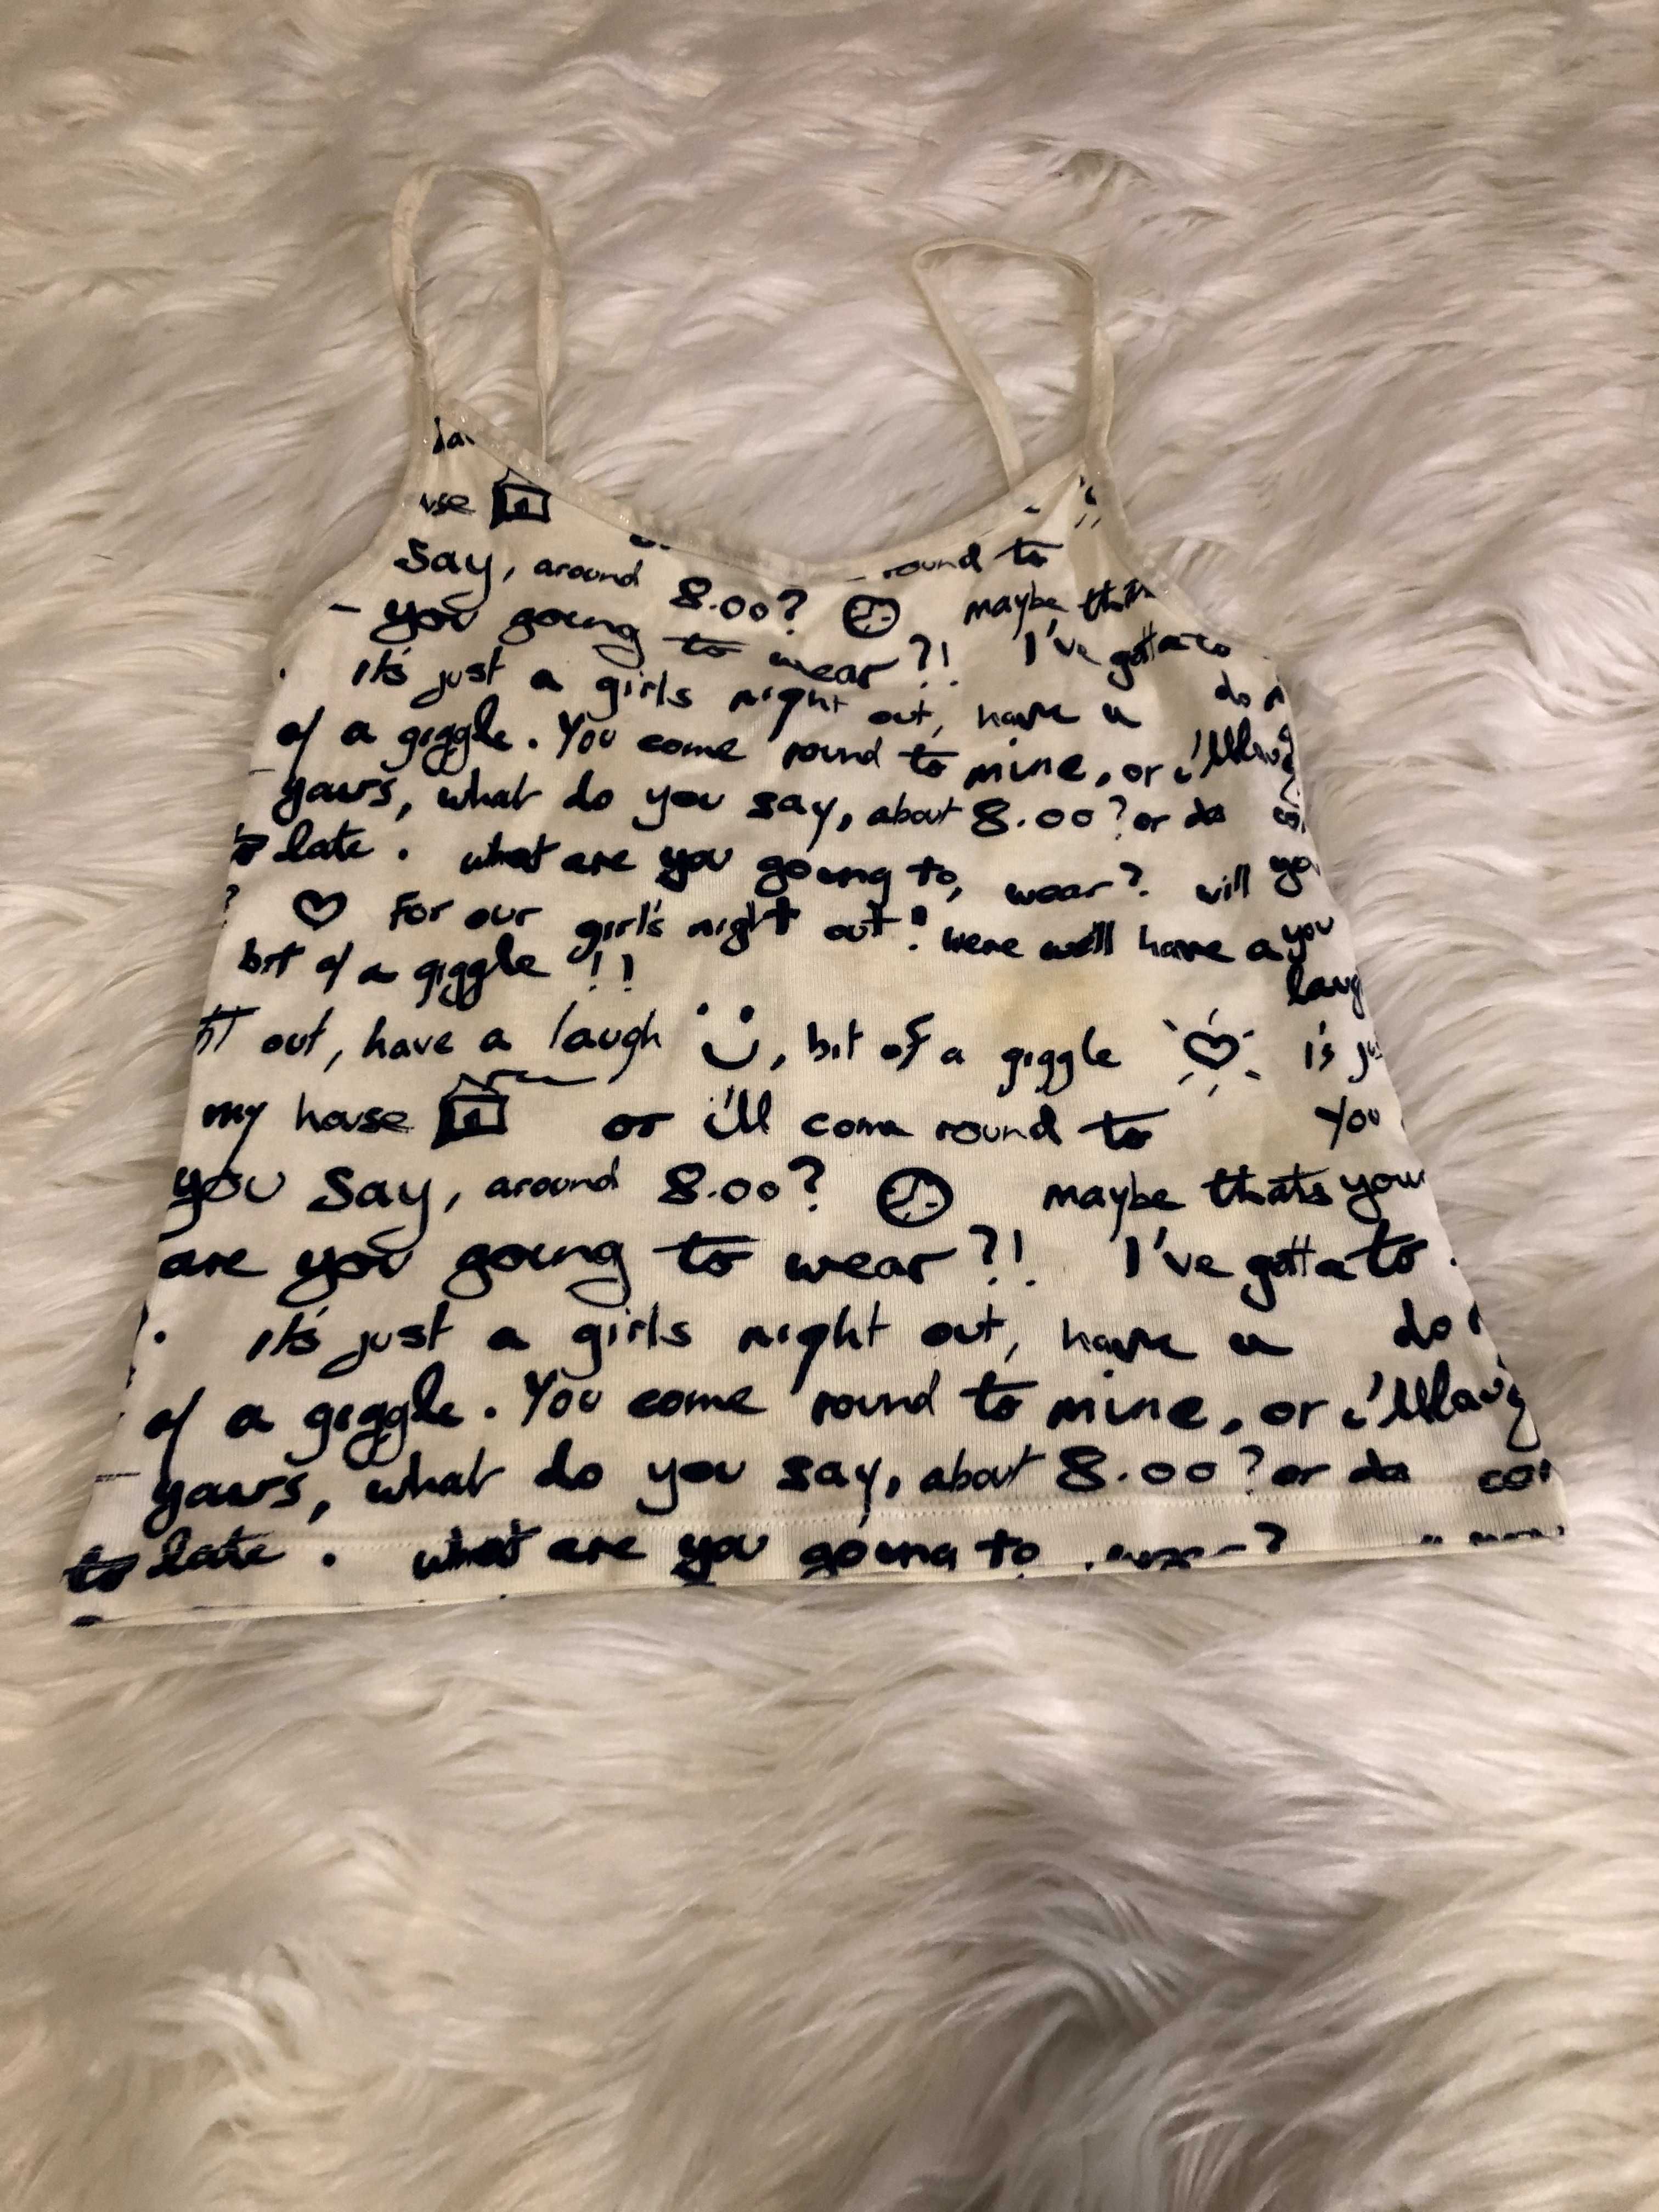 Say, around 8.00? round to
maybe
you going to wear?! I've gotta to
it's just a girls night out, have a do
of a giggle. You come round to mine, or i'll
yours, what do you say, about 8.00? or do
to late. what are you going to, wear? will yo
? For our girl's night out! were we'll have a you
bit of a giggle !!
out, have a laugh, bit of a giggle is ju
my house or i'll come round to You
you Say, around 8.00? maybe thats your
are you going to wear?! I've gotta to
it's just a girls night out, have a do
of a giggle. You come round to mine, or i'll
yours, what do you say, about 8.00? or do
to late. what are you going to